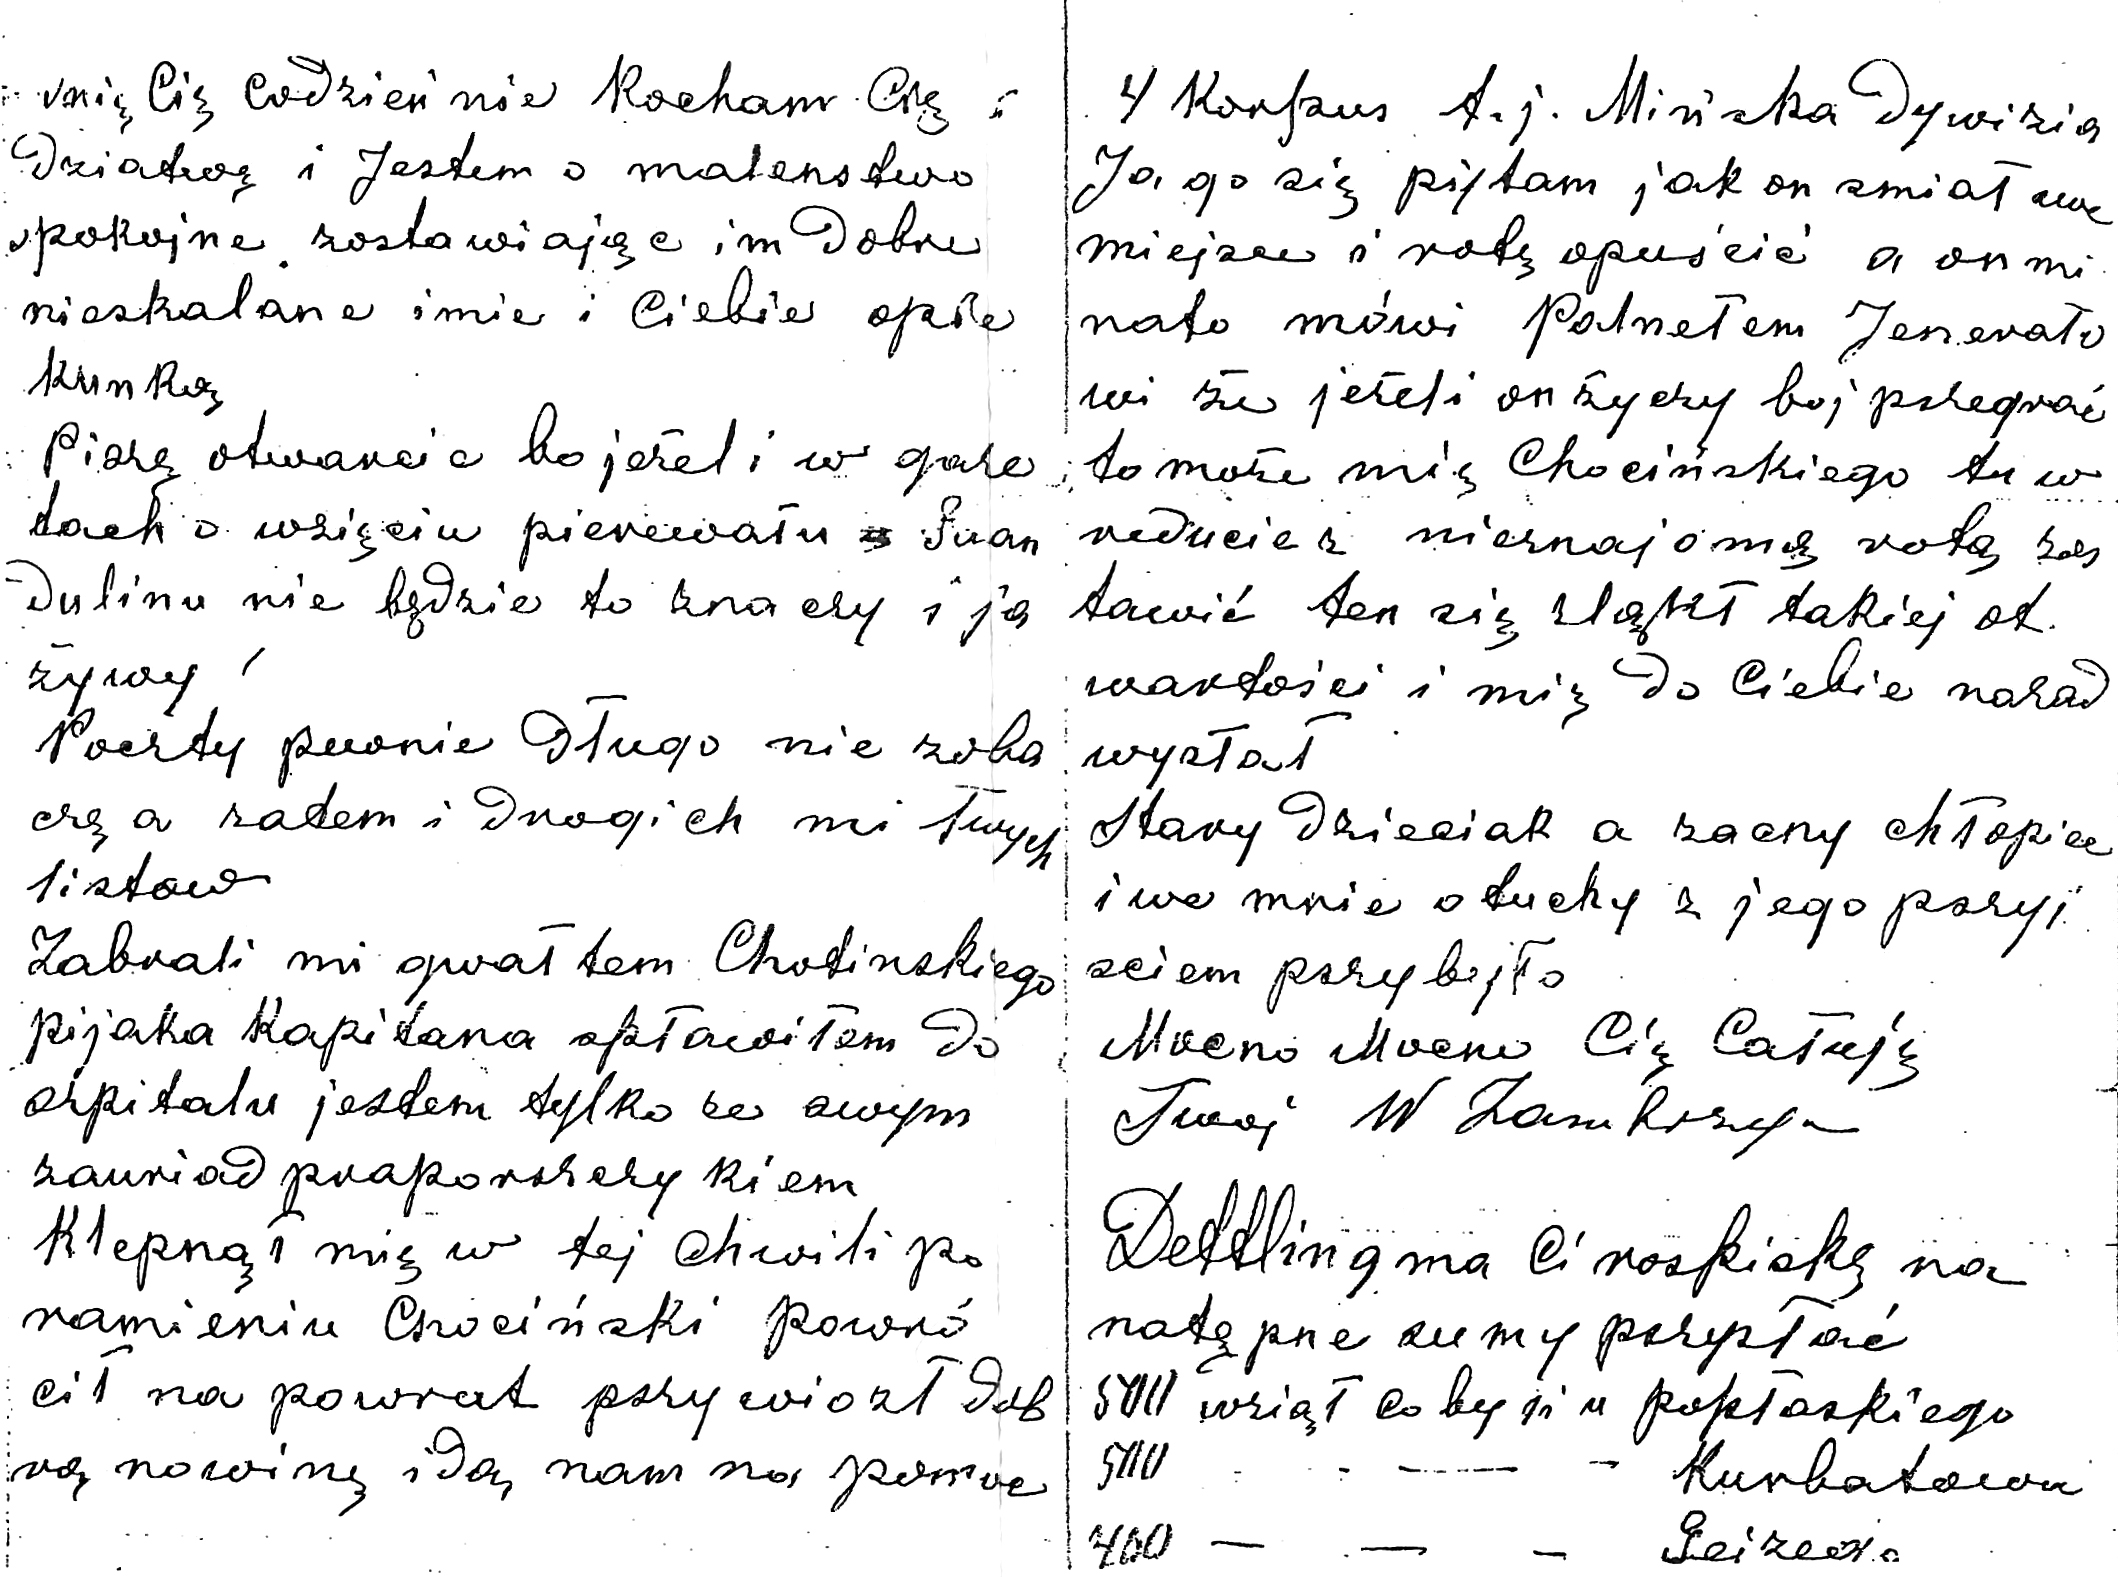 śnię Cię codzień nie Kocham Cię i
Dziatwę i Jestem o malenstwo
spokojne zostawiając im Dobre
nieskalane imie i Ciebie opie
kunką
Piszę otwarcie bo jeżeli w gaze
tach o wzięciu pierewału Suan
Dulinu nie będzie to znaczy i ja
żywy!
Poczty pewnie Długo nie zoba
czę a zatem i Drogich mi Twych
listow
Zabrali mi gwałtem Chotinskiego
pijaka Kapitana spławiłem Do
szpitalu jestem tylko ze swym
zauriad praporszczykiem
Klepnął mię w tej Chwili po
ramieniu Chociński powró
cił na powrut pszywiozł Dob
rą nowinę idą nam na pomoc
4 Korpus t.j. Mińska Dywizia
Ja go się piytam jak on smiał swe
miejsce i rotę opuścić a on mi
nato mówi Palnełem Jenerało
wi że jeżeli on życzy boj pszegrać
to może mię Chocińskiego tu w
reducie z nieznajomą rotą zos
tawić ten się zląkł takiej ot
wartości i mię Do Ciebie nazad
wysłał
Stary Dzieciak a zacny chłopiec
i we mnie otuchy z jego pszyj
sciem pszybyło
Mocno Mocno Cię Całuję
Twoj W
Dettling ma Ci rospiskę na
natępne sumy pszysłać
500 wziął coby ji u popłaskiego
500 - - — - Kurbatowa
400 — — -